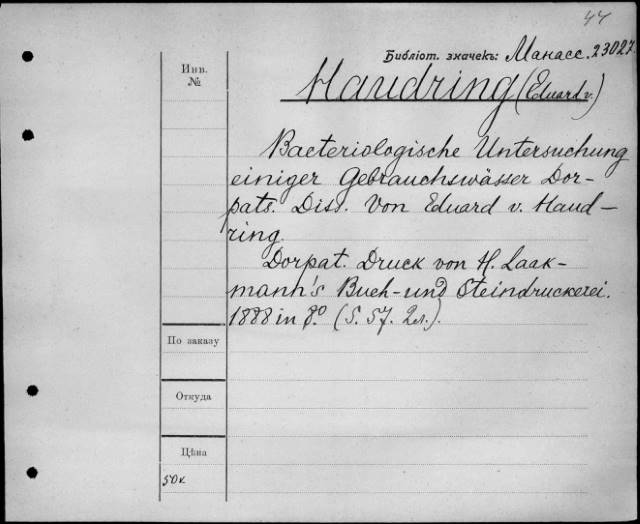 44
Библіот. значекъ: Манасс. 23027.
Инв.
№
Haudring (Eduard v.)
Bacteriologische Untersuchung
einiger Gebrauchswässer Dor-
pats. Diss. Von Eduard v. Haud-
ring.
Dorpat. Druck von H. Laak-
mann's Buch- und Steindruckerei.
1888 in 8.º (S. 57. 2 л.).
По заказу
Откуда
Цѣна
50 к.